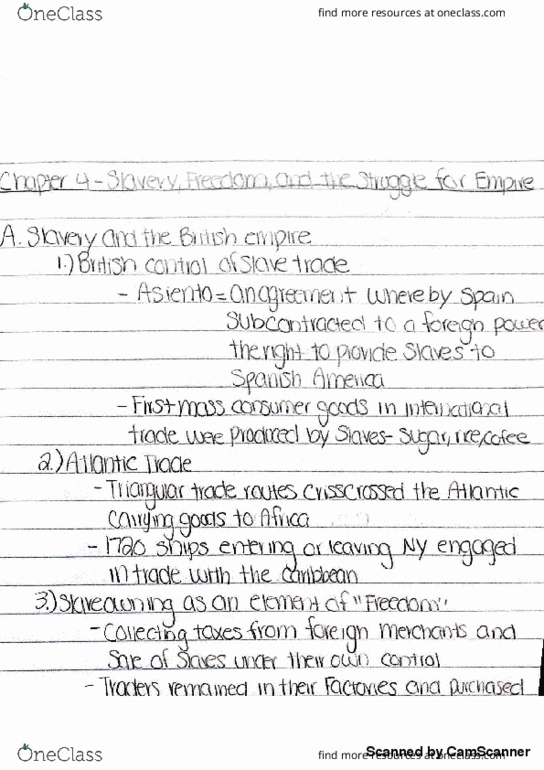 OneClass
find more resources at oneclass.com
Chapter 4 - Slavery, Freedom, and the Struggle for Empire
A. Slavery and the British empire
1.) British control of slave trade
- Asiento = an agreement whereby Spain
subcontracted to a foreign power
the right to provide slaves to
Spanish America
- First mass consumer goods in international
trade wee produced by slaves - sugar, rice, cofee
2.) Atlantic Trade
- Triangular trade routes crisscrossed the Atlantic
carrying goods to Africa
- 1720 ships entering or leaving NY engaged
in trade with the caribbean
3.) Slaveowning as an element of "Freedom"
- Collecting taxes from foreign merchants and
sale of slaves under their own control
- Traders remained in their Factories and purchased
OneClass
find more resources at oneclass.com
Scanned by CamScanner